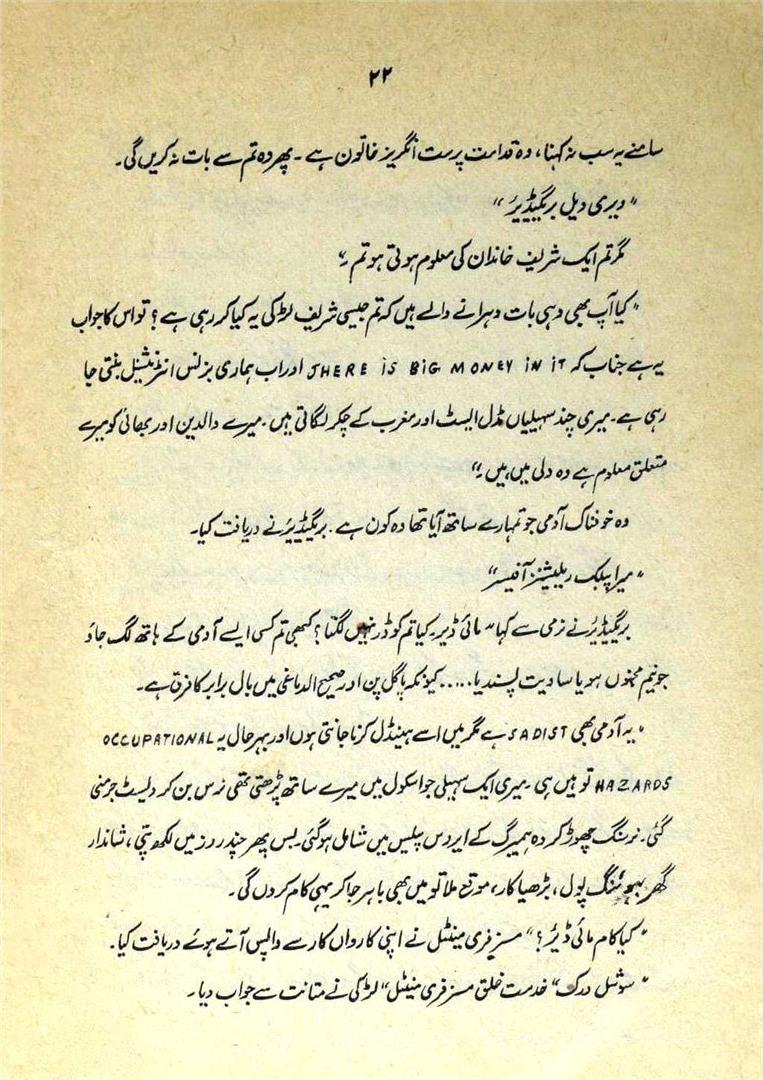 ۲۲
سامنے یہ سب نہ کہنا، وہ قدامت پرست انگریز خاتون ہے۔ پھر وہ تم سے بات نہ کریں گی۔
"ویری ویل بریگیڈیرَ"
مگر تم ایک شریف خاندان کی معلوم ہوتی ہو تم۔"
"کیا آپ بھی وہی بات دہرانے والے ہیں کہ تم جیسی شریف لڑکی یہ کیا کر رہی ہے؟ تو اس کا جواب
یہ ہے جناب کہ THERE IS BIG MONEY IN IT اور اب ہماری بزنس انٹرنیشنل بنتی جا
رہی ہے۔ میری چند سہیلیاں مڈل ایسٹ اور مغرب کے چکر لگاتی ہیں۔ میرے والدین اور بھائی کو میرے
متعلق معلوم ہے وہ دلی میں ہیں۔"
وہ خوفناک آدمی جو تمہارے ساتھ آیا تھا وہ کون ہے۔ بریگیڈیرَ نے دریافت کیا۔
"میرا پبلک ریلیشنز آفیسر"
بریگیڈیرَ نے نرمی سے کہا "مائی ڈیر۔ کیا تم کو ڈر نہیں لگتا؟ کبھی تم کسی ایسے آدمی کے ہاتھ لگ جاؤ
جو نیم مجنوں ہو یا سادیت پسند یا..... کیونکہ پاگل پن اور صحیح الدماغی میں بال برابر کا فرق ہے۔
"یہ آدمی بھی SADIST ہے مگر میں اسے ہینڈل کرنا جانتی ہوں اور بہرحال یہ OCCUPATIONAL
HAZARDS تو ہیں ہی۔ میری ایک سہیلی جو اسکول میں میرے ساتھ پڑھتی تھی نرس بن کر ویسٹ جرمنی
گئی۔ نرسنگ چھوڑ کر وہ ہمبرگ کے ایروس پیلیس میں شامل ہو گئی۔ بس پھر چند روز میں لکھوپتی، شاندار
گھر سوئمنگ پول، بڑھیا کار، موقع ملا تو میں بھی باہر جا کر یہی کام کروں گی۔
"کیا کام مائی ڈیرَ؟" مسز فری مینٹل نے اپنی کارواں کار سے واپس آتے ہوئے دریافت کیا۔
"سوشل ورک" خدمت خلق مسز فری مینٹل" لڑکی نے متانت سے جواب دیا۔